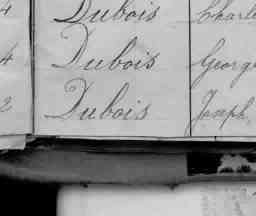 4 Dubois Charle
4 Dubois George
2 Dubois Joseph